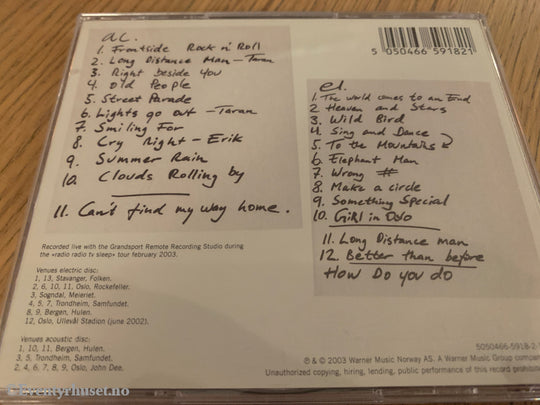 ac.
1. Frontside Rock n' Roll
2. Long Distance Man - Taran
3. Right beside you
4. Old People
5. Street Parade
6. Lights go out - Taran
7. Smiling For
8. Cry Right - Erik
9. Summer Rain
10. Clouds Rolling by
11. Can't find my way home.
Recorded live with the Grandsport Remote Recording Studio during
the «radio radio tv sleep» tour february 2003.
Venues electric disc:
1, 13, Stavanger, Folken.
2, 6, 10, 11, Oslo, Rockefeller.
3, Sogndal, Meieriet.
4, 5, 7, Trondheim, Samfundet.
8, 9, Bergen, Hulen.
12, Oslo, Ullevål Stadion (june 2002).
Venues acoustic disc:
1, 10, 11, Bergen, Hulen.
3, 5, Trondheim, Samfundet.
2, 4, 6, 7, 8, 9, Oslo, John Dee.
5 050466 591821
el.
1. The world comes to an End
2. Heaven and Stars
3. Wild Bird
4. Sing and Dance
5. To the Mountains
6. Elephant Man
7. Wrong #
8. Make a circle
9. Something Special
10. Girl in Oslo
11. Long Distance man
12. Better than before
How Do you do
5050466-5918-2-
℗ & © 2003 Warner Music Norway AS. A Warner Music Group company
Unauthorized copying, hiring, lending, public performance of this record prohibited
© Eventyrhuset.no